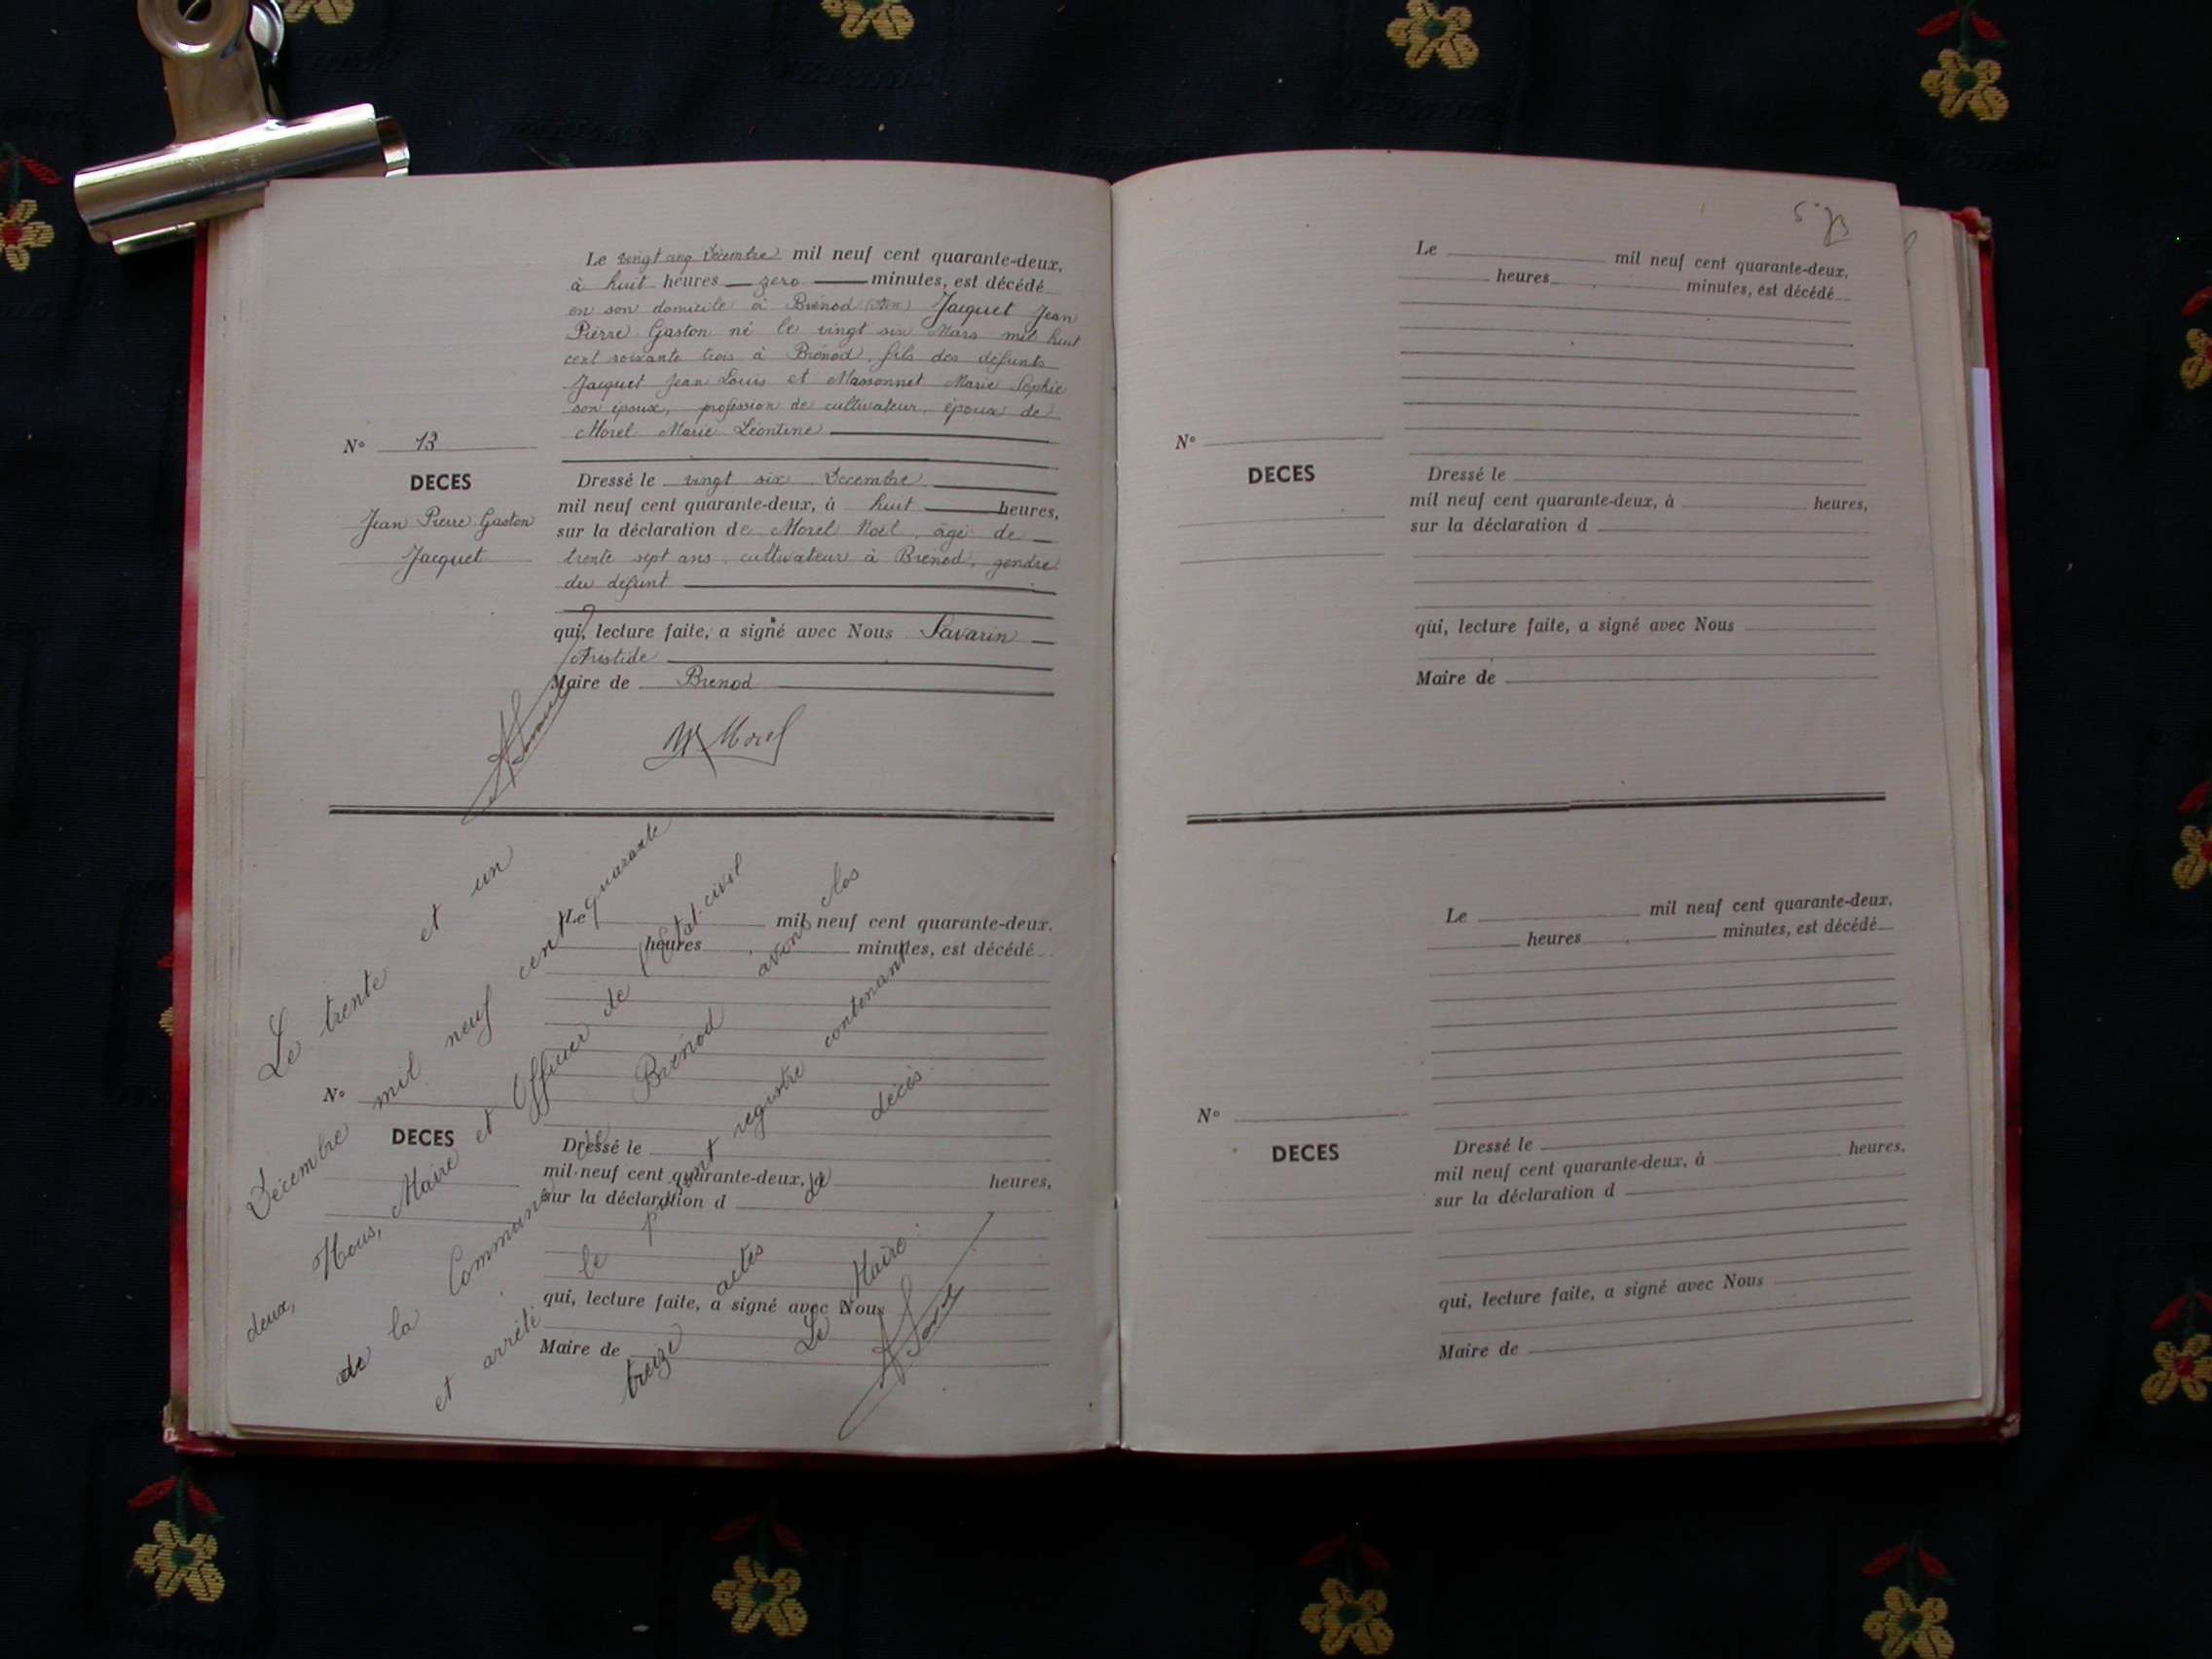 Le vingt cinq Décembre mil neuf cent quarante-deux,
à huit heures zero minutes, est décédé
en son domicile à Brénod (Ain) Jacquet Jean
Pierre Gaston né le vingt six Mars mil huit
cent soixante trois à Brénod, fils des défunts
Jacquet Jean Louis et Massonnet Marie Sophie
son épouse, profession de cultivateur, époux de
Morel Marie Léontine
N° 13
DECES
Jean Pierre Gaston
Jacquet
Dressé le vingt six Décembre
mil neuf cent quarante-deux, à huit heures,
sur la déclaration de Morel Noël, âgé de
trente sept ans, cultivateur à Brénod, gendre
du défunt
qui, lecture faite, a signé avec Nous Savarin
Aristide
Maire de Brenod
Morel
Le mil neuf cent quarante-deux,
heures minutes, est décédé
N°
DECES
Dressé le
mil neuf cent quarante-deux, à heures,
sur la déclaration d
qui, lecture faite, a signé avec Nous
Maire de
Le trente et un
Décembre mil neuf cent quarante
deux, Nous, Maire et Officier de l'Etat-civil
de la Commune de Brénod avons clos
et arrêté le présent registre contenant
treize actes de décès.
Le Maire:
5
Le mil neuf cent quarante-deux,
heures minutes, est décédé
N°
DECES
Dressé le
mil neuf cent quarante-deux, à heures,
sur la déclaration d
qui, lecture faite, a signé avec Nous
Maire de
Le mil neuf cent quarante-deux,
heures minutes, est décédé
N°
DECES
Dressé le
mil neuf cent quarante-deux, à heures,
sur la déclaration d
qui, lecture faite, a signé avec Nous
Maire de